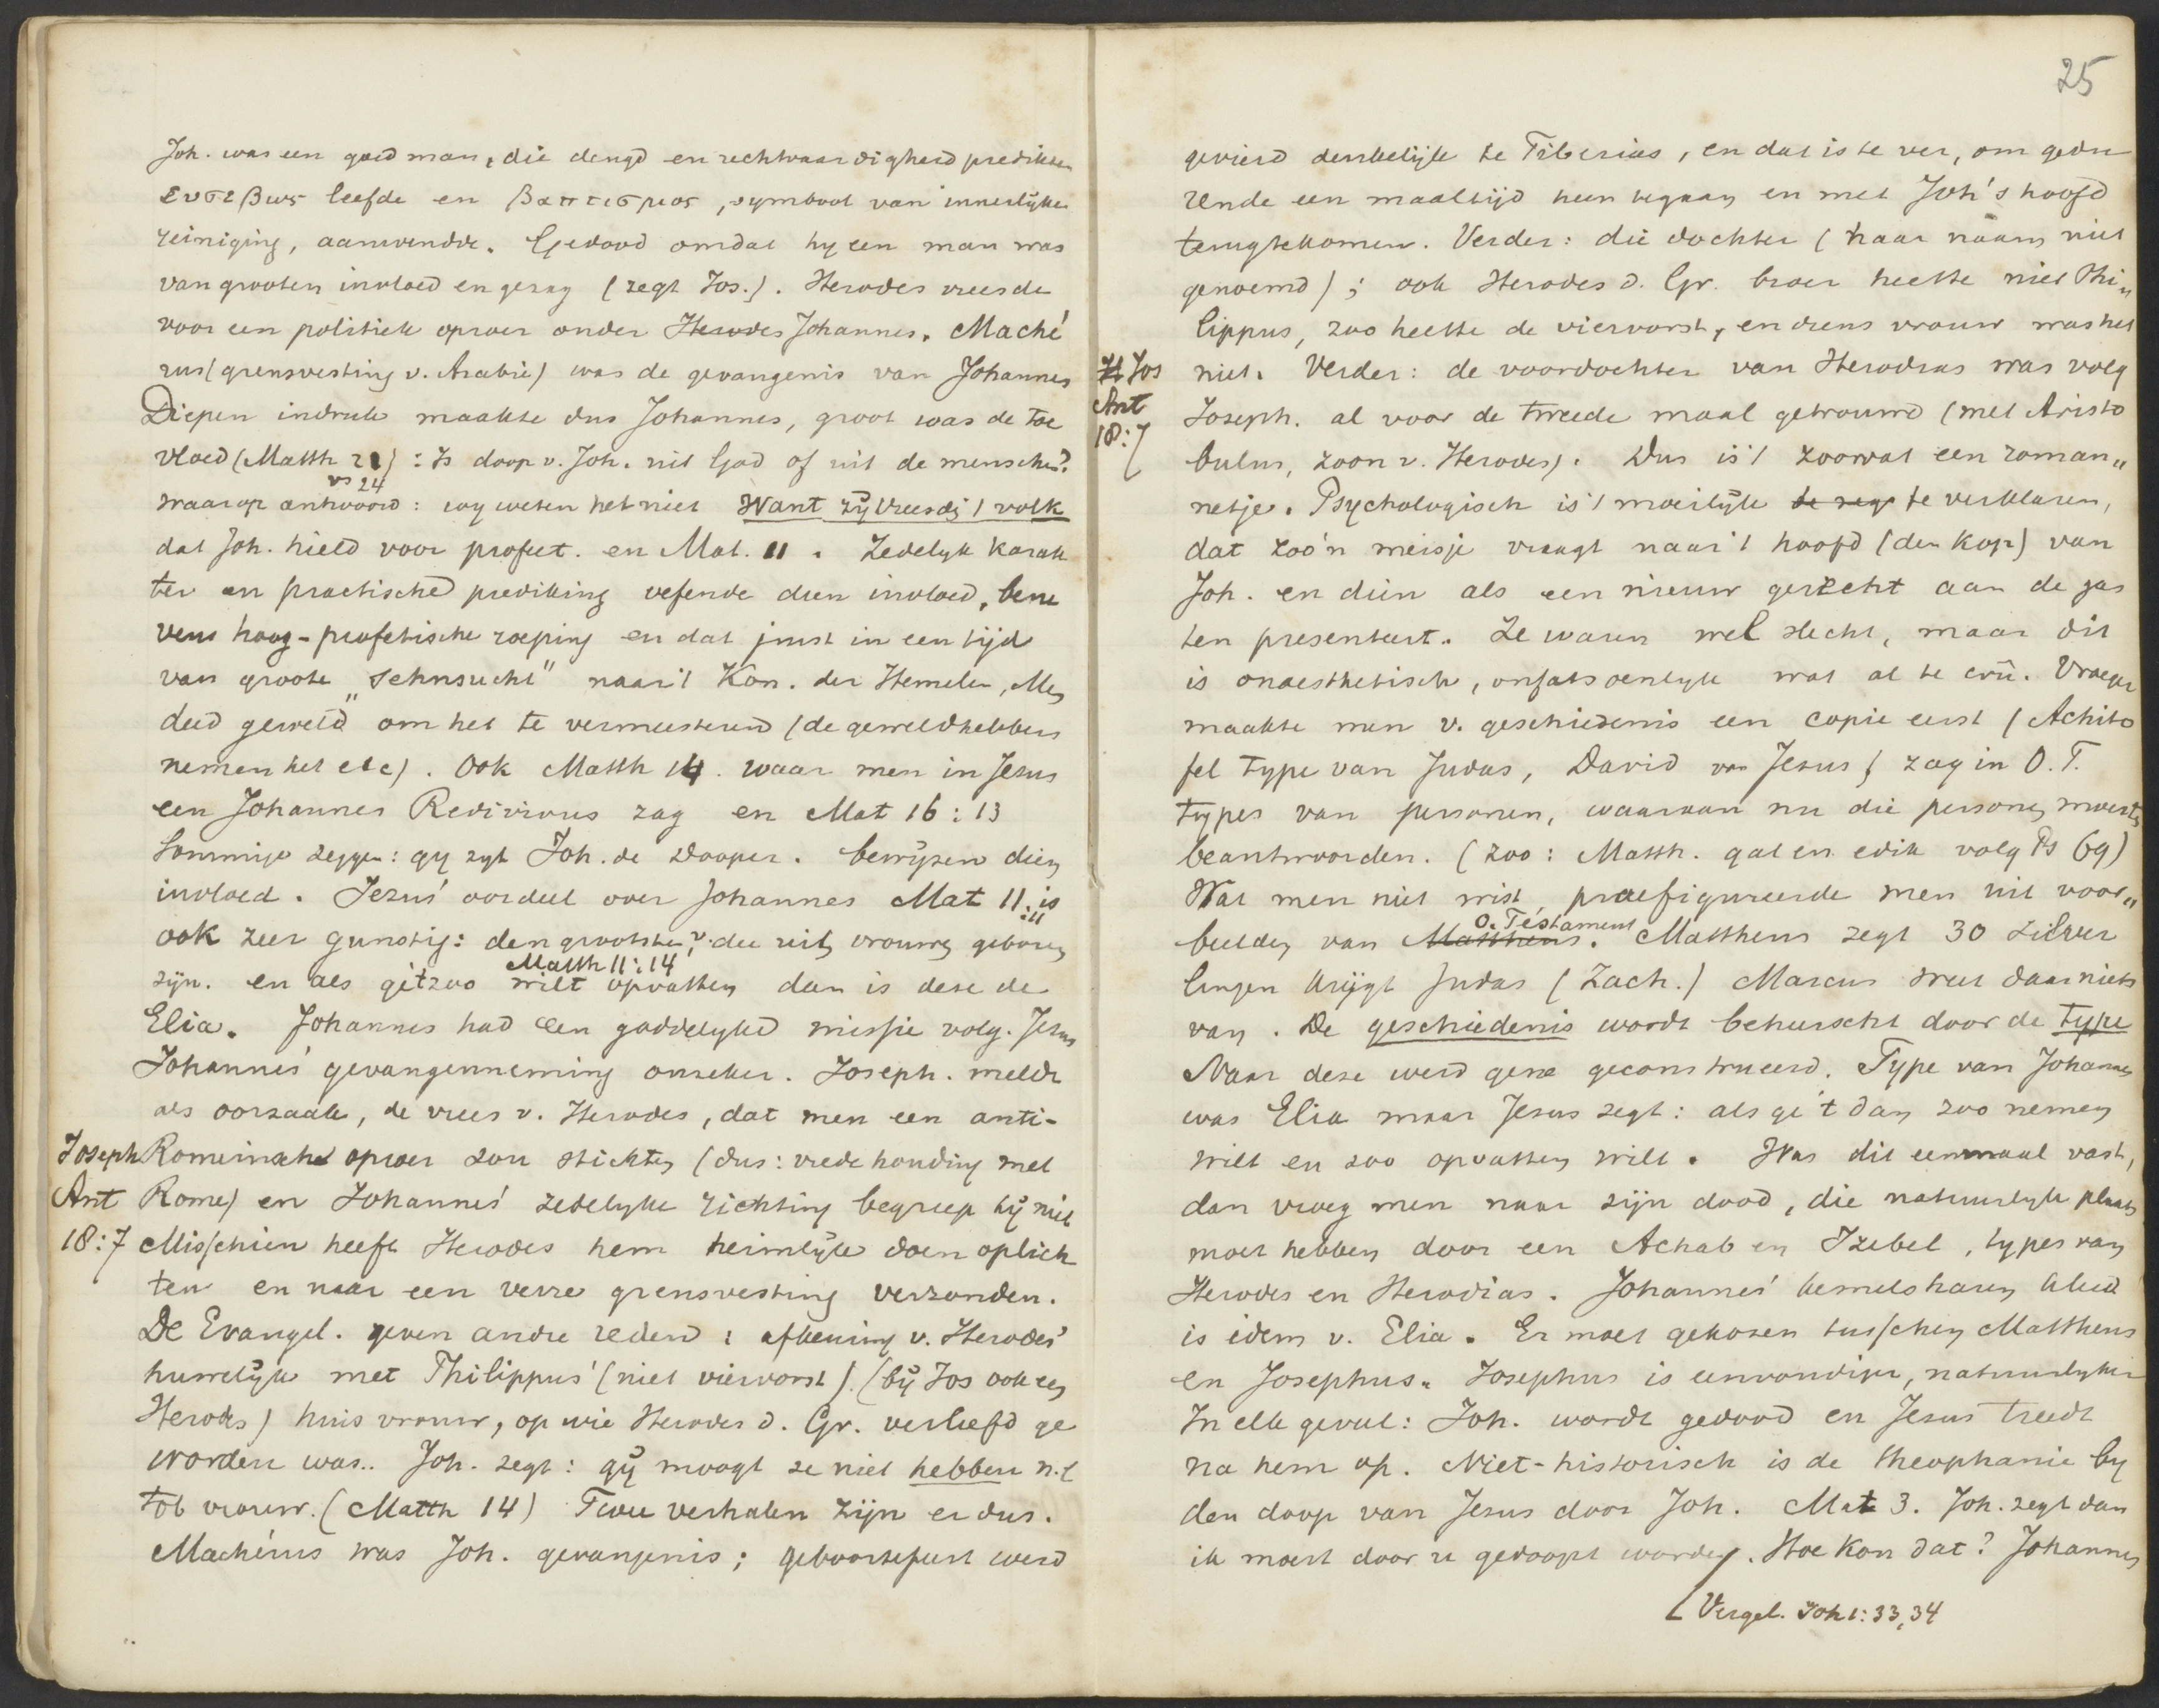 Joh. was een goed man, die deugd en rechtvaardigheid predikte
ευσεβως leefde en βαπτισμος, symbool van innerlyke
reiniging, aanwendde. Gedood omdat hy een man was
van grooten invloed en gezag (zegt Jos.). Herodes vreesde
voor een politiek oproer onder Herodes Johannes. Maché
rus (grensvesting v. Arabië) was de gevangenis van Johannes
Diepen indruk maakte dus Johannes, groot was de toe
vloed (Matth 21) : Is doop v. Joh. uit God of uit de menschen?
vs 24
waarop antwoord: wy weten het niet Want zij vreesdē 't volk
dat Joh. hield voor profeet. en Mat. 11. Zedelyk karak
ter en practische prediking oefende dien invloed, bene
vens hoog-profetische roeping en dat juist in een tijd
van groote "Sehnsucht" naar 't Kon. der Hemelen, Men
deed geweld om het te vermeesteren (de geweldhebbers
nemen het etc). Ook Matth 14. waar men in Jesus
een Johannes Redivivus zag en Mat 16:13
Sommige zeggen: gy zyt Joh. de Dooper. bewijzen dien
invloed. Jezus' oordeel over Johannes Mat 11:11 is
ook zeer gunstig: den grootsten v. die uit vrouwen geboren
Matth 11:14
zijn. en als gij 't zoo wilt opvatten dan is deze de
Elia. Johannes had een goddelyke missie volg. Jesus
Johannes' gevangenneming onzeker. Joseph. meldt
als oorzaak, de vrees v. Herodes, dat men een anti-
Joseph Romeinsch oproer zou stichten (dus: vrede houding met
Ant Rome) en Johannes' zedelyke richting begreep hij niet
18:7 Misschien heeft Herodes hem heimelijk doen oplich
ten en naar een verre grensvesting verzonden.
De Evangel. geven andre reden: afkeuring v. Herodes'
huwelijk met Philippus' (niet viervorst). (bij Jos ook een
Herodes) huisvrouw, op wie Herodes d. Gr. verliefd ge
worden was.. Joh. zegt: gij moogt ze niet hebben n.l
tot vrouw. (Matth 14) Twee verhalen zijn er dus.
Machérus was Joh. gevangenis; geboortefeest werd
25
gevierd denkelijk te Tiberias, en dat is te ver, om gedu
rende een maaltijd heen tegaan en met Joh's hoofd
terugtekomen. Verder: die dochter (haar naam niet
genoemd); ook Herodes d. Gr. broer heette niet Phi„
lippus, zoo heette de viervorst, en diens vrouw was het
H Jos niet. Verder: de voordochter van Herodias was volg
Ant Joseph. al voor de tweede maal getrouwd (met Aristo
18:7 bulus, zoon v. Herodes). Dus is 't zoowat een roman„
netje. Psychologisch is 't moeilijk te zeg te verklaren,
dat zoo'n meisje vraagt naar 't hoofd (den kop) van
Joh. en dien als een nieuw gerecht aan de gas
ten presenteert. Ze waren wel slecht, maar dit
is onaesthetisch, onfatsoenlyk wat al te crû. Vroeger
maakte men v. geschiedenis een copie eerst (Achito
fel type van Judas, David van Jesus) zag in O.T.
types van personen, waaraan nu die personen moesten
beantwoorden. (Zoo: Matth. gal en edik volg Ps 69)
Wat men niet wist, praefigureerde men uit voor„
O. Testament
beelden van Mattheus. Mattheus zegt 30 zilver
lingen krijgt Judas (Zach.) Marcus weet daar niets
van. De geschiedenis wordt beheerscht door de type
Naar deze werd gene geconstrueerd. Type van Johannes
was Elia maar Jesus zegt: als ge 't dan zoo nemen
wilt en zoo opvatten wilt. Was dit eenmaal vast,
dan vroeg men naar zijn dood, die natuurlyk plaats
moet hebben door een Achab en Izebel, types van
Herodes en Herodias. Johannes' kemelsharen kleed
is idem v. Elia. Er moet gekozen tusschen Mattheus
en Josephus. Josephus is eenvoudiger, natuurlyker
In elk geval: Joh. wordt gedood en Jesus treedt
na hem op. Niet-historisch is de theophanie by
den doop van Jesus door Joh. Mat 3. Joh. zegt dan
ik moest door u gedoopt worden. Hoe kon dat? Johannes
Vergel. Joh 1:33,34